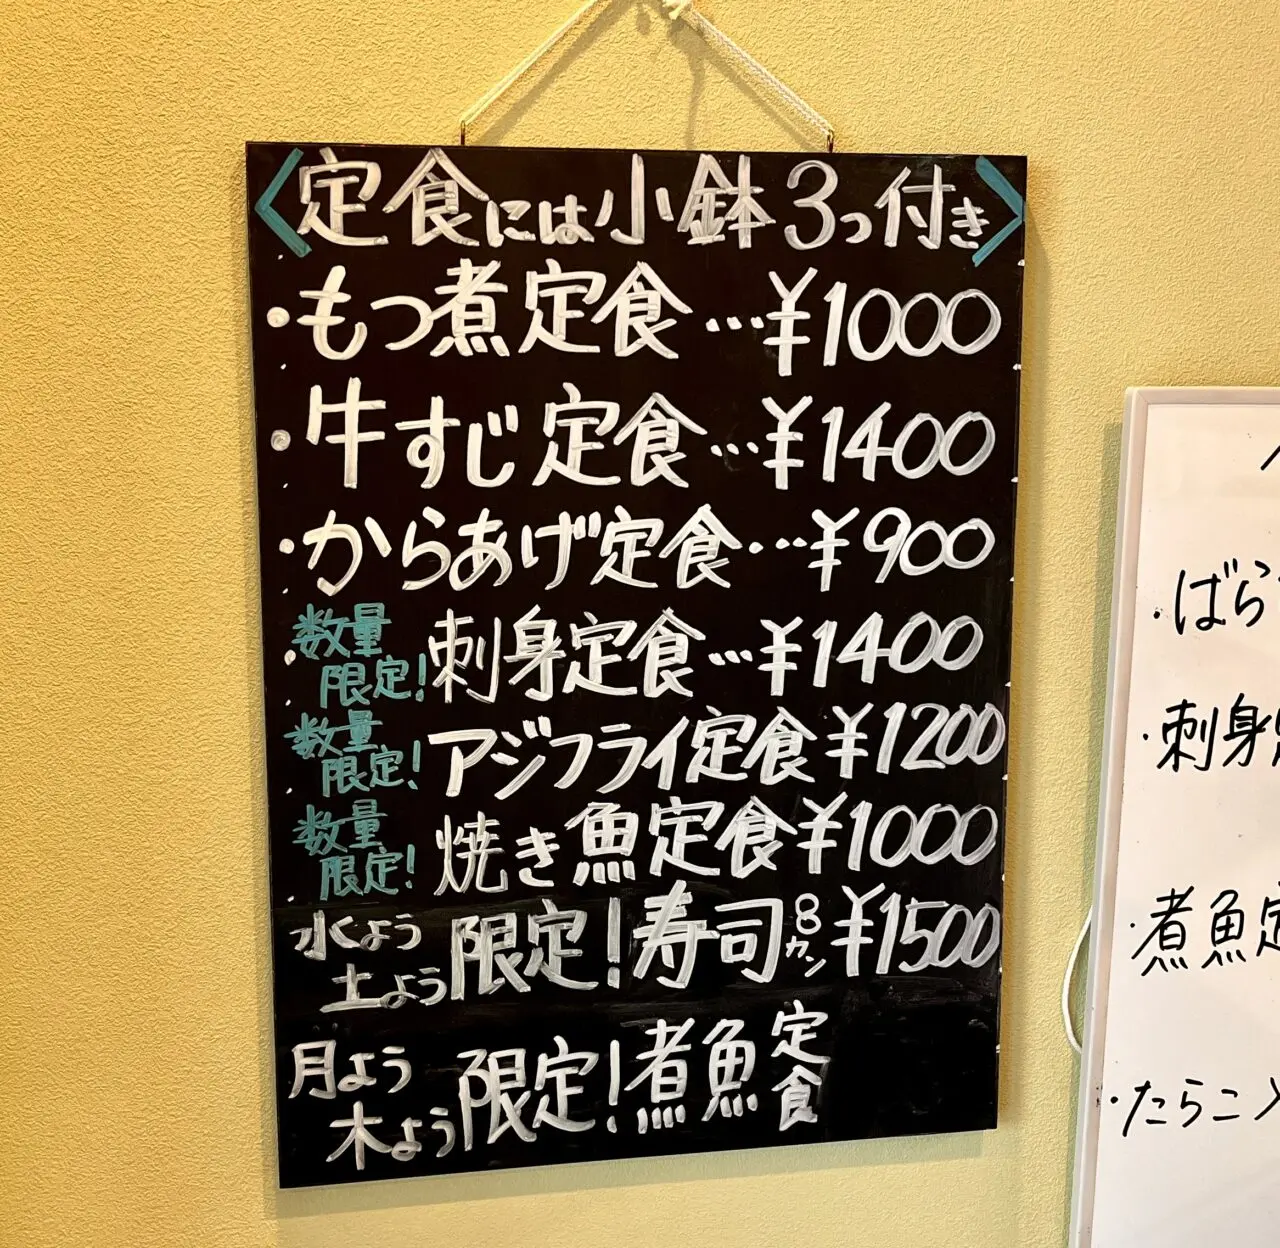 〈定食には小鉢3つ付き〉
・もつ煮定食…¥1000
・牛すじ定食…¥1400
・からあげ定食…¥900
数量限定!刺身定食…¥1400
数量限定!アジフライ定食¥1200
数量限定!焼き魚定食¥1000
水よう土よう限定!寿司8カン¥1500
月よう木よう限定!煮魚定食
・ばら
・刺身
・煮魚定
・たらこ